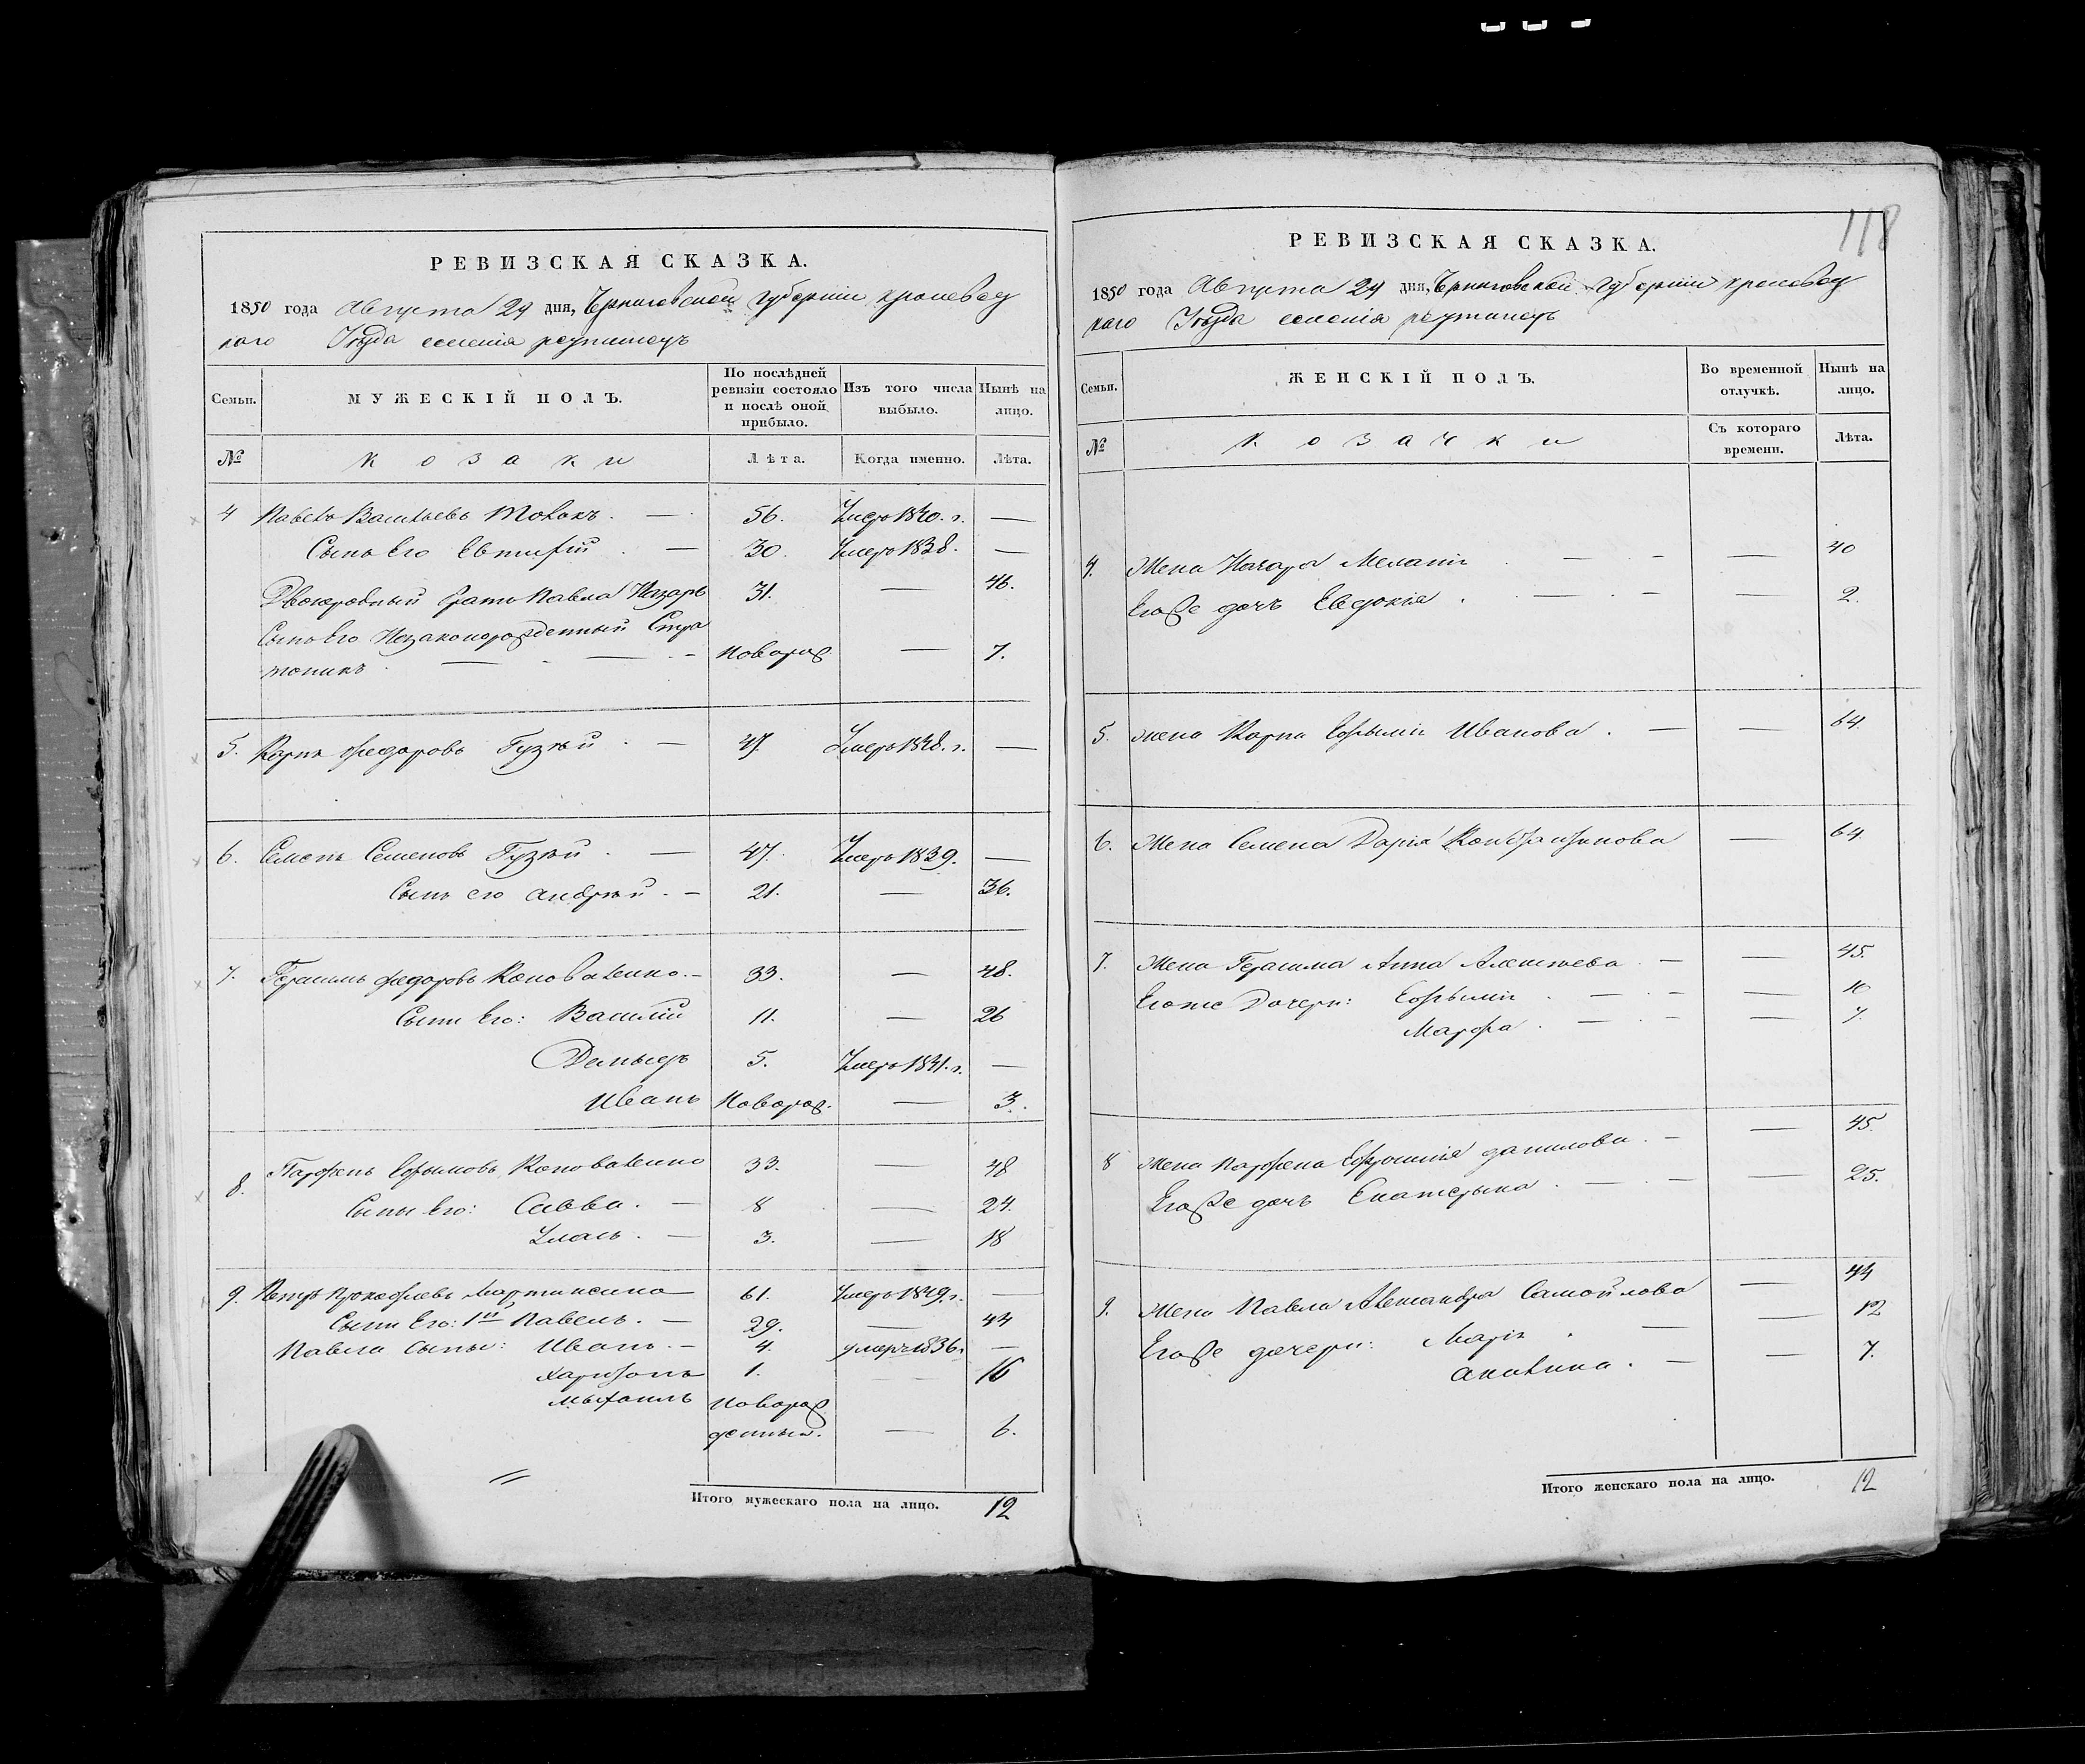 РЕВИЗСКАЯ СКАЗКА.
1850 года Августа 24 дня, Черниговской губернии кролевец
каго Уезда селенія реутинецъ
Семьи. МУЖЕСКІЙ ПОЛЪ. По послѣдней ревизіи состояло и послѣ оной прибыло. Изъ того числа выбыло. Нынѣ на лицо.
№ Козаки Лѣта. Когда именно. Лѣта.
4 Павелъ Васильевъ 56. Умеръ 1840. г. —
Сынъ Его Евтифій . — 30. Умеръ 1838. —
Двоюродный братъ Павла Назаръ 31. — 46.
Сынъ Его Незаконорожденный Стра
тоникъ Новорож — 7.
5. Карпъ Федоровъ Гузѣй . — 47. Умеръ 1848. г. —
6. Семенъ Семеновъ Гузѣй . — 47. Умеръ 1839. —
Сынъ его андрѣй . — 21. — 36.
7. Герасимъ федоровъ Коноваленко. — 33. — 48.
Сыни Его: Василій 11. — 26
Демьянъ 5. Умеръ 1841. г. —
Иванъ Новорож. — 3.
8. Парфенъ Ефимовъ Коноваленко 33. — 48
Сыны Его: Савва. — 8 — 24.
Улась. — 3. — 18
9. Петръ Прокофіевъ Мартиненко 61. Умеръ 1849. г. —
Сыни Его: 1й Павелъ. — 29. — 44
Павла Сыны: Иванъ. — 4. умеръ 1836. —
Харитонъ 1. — 16
Мыхаилъ Новорож
денный. — 6.
Итого мужескаго пола на лицо. 12
118
РЕВИЗСКАЯ СКАЗКА.
1850 года Августа 24 дня, Черниговской Губерніи кролевец
каго Уезда селенія реутинецъ
Семьи. ЖЕНСКІЙ ПОЛЪ. Во временной отлучкѣ. Нынѣ на лицо.
№ Козачки Съ котораго времени. Лѣта.
4. Жена Назара Меланія . — — 40
Егоже дочь Евдокія . — — 2.
5. жена Карпа Ефимія Иванова . — — 64.
6. Жена Семена Дарія Константинова — 64
7. Жена Герасима Анна Алексѣева . — — 45.
Егоже Дочери: Ефимія . — — 10
Марфа . — — 7.
8 Жена Парфена Ефросинія данилова . — — 45.
Егоже дочъ Екатерына . — — 25.
9. Жена Павла Александра Самойлова — 44
Егоже дочери: Марія . — — 12
акилина . — — 7.
Итого женскаго пола на лицо. 12